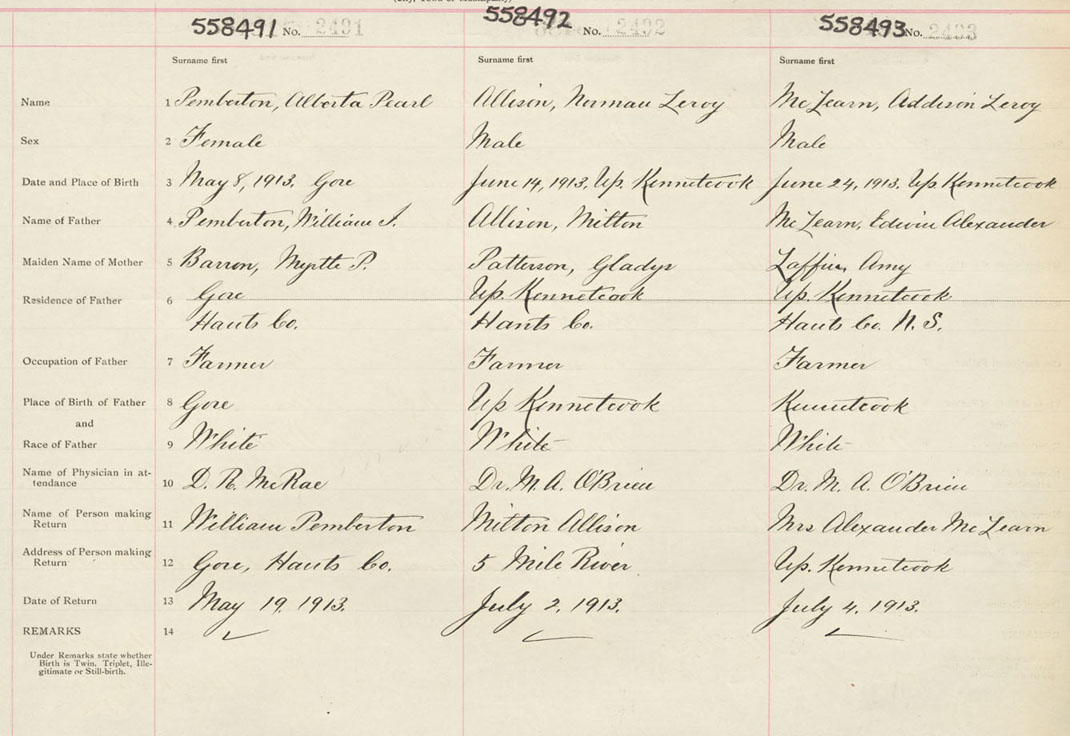 558491 No. 2491 558492 No. 2492 558493 No. 2493
Surname first Surname first Surname first
Name 1 Pemberton, Alberta Pearl Allison, Norman Leroy McLearn, Addison Leroy
Sex 2 Female Male Male
Date and Place of Birth 3 May 8, 1913. Gore June 14, 1913, Up. Kennetcook June 24, 1913, Up Kennetcook
Name of Father 4 Pemberton, William J. Allison, Milton McLearn, Edwin Alexander
Maiden Name of Mother 5 Barron, Myrtle P. Patterson, Gladys Laffin, Amy
Residence of Father 6 Gore Up. Kennetcook Up. Kennetcook
Hants Co. Hants Co. Hants Co. N. S.
Occupation of Father 7 Farmer Farmer Farmer
Place of Birth of Father 8 Gore Up Kennetcook Kennetcook
and
Race of Father 9 White White White
Name of Physician in at-
tendance 10 D. R. McRae Dr. M. A. O'Brien Dr. M. A. O'Brien
Name of Person making
Return 11 William Pemberton Milton Allison Mrs Alexander McLearn
Address of Person making
Return 12 Gore, Hants Co. 5 Mile River Up. Kennetcook
Date of Return 13 May 19, 1913. July 2, 1913. July 4, 1913.
REMARKS 14
Under Remarks state whether
Birth is Twin, Triplet, Ille-
gitimate or Still-birth.